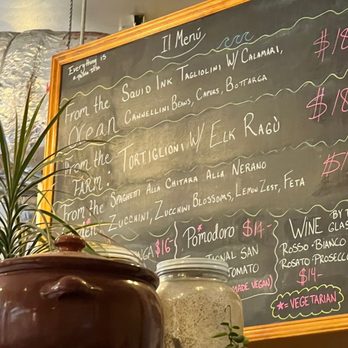 Il Menú
Everything is
From the
Ocean
Squid Ink Tagliolini w/ Calamari,
Cannellini Beans, Capers, Bottarga
$18
From the
Farm:
Tortiglioni w/ Elk Ragù
$18
From the
Spaghetti alla Chitara alla Nerano
Zucchini, Zucchini Blossoms, Lemon Zest, Feta
$16
Pomodoro $14
San
Tomato
Made Vegan)
Wine by the
Glass
Rosso - Bianco
Rosato Prosecco
$14-
*= Vegetarian